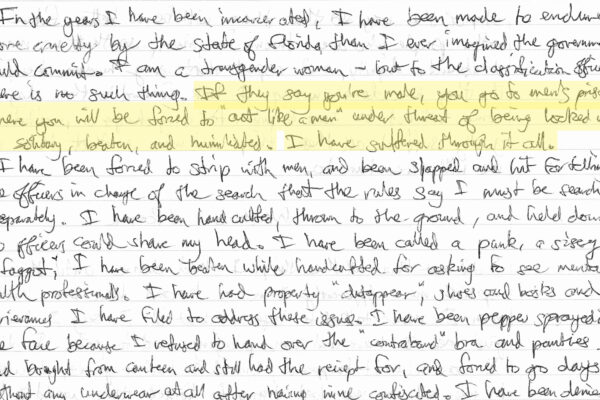 In the years I have been incarcerated, I have been made to endure
cruelty by the state of Florida than I ever imagined the governm
commit. I am a transgender woman - but to the classification
is no such thing. If they say you're male, you go to men's pris
you will be forced to "act like a man" under threat of being locked
solitary, beaten, and humiliated. I have suffered through it all.
I have been forced to strip with men, and been slapped and hit for tellin
officers in charge of the search that the rules say I must be search
separately. I have been handcuffed, thrown to the ground, and held down
officers could shave my head. I have been called a punk, a sissy
faggot", I have been beaten while handcuffed for asking to see mental
professionals. I have had property "disappear", shoes and books and
grievances I have filed to address these issues. I have been pepper sprayed
face because I refused to hand over the "contraband" bra and panties
bought from canteen and still had the reciept for, and forced to go days
any underwear at all after having mine confiscated. I have been denied